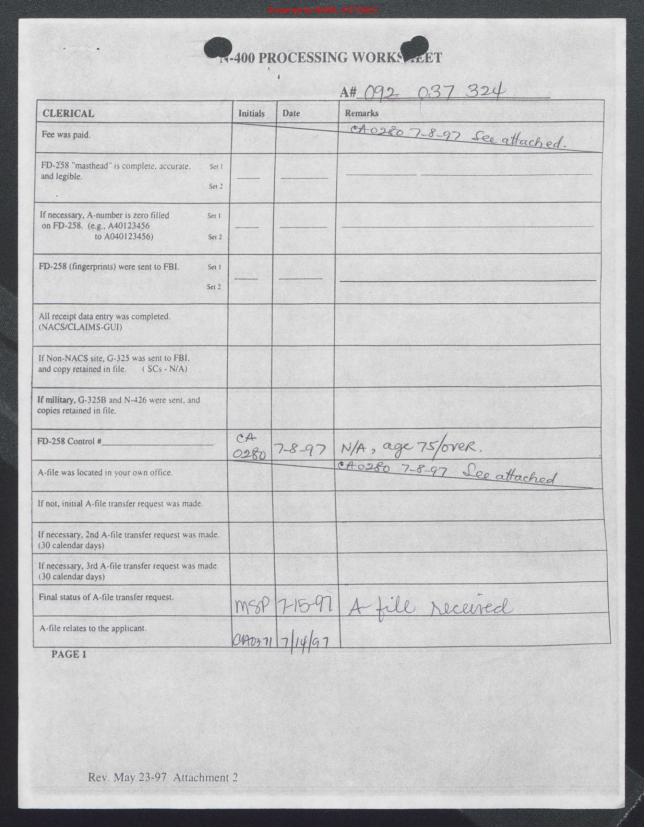 N-400 PROCESSING WORKSHEET
A# 092 037 324
CLERICAL Initials Date Remarks
Fee was paid. CA0280 7-8-97 See attached.
FD-258 "masthead" is complete, accurate, Set 1
and legible.
Set 2
If necessary, A-number is zero filled Set 1
on FD-258. (e.g., A40123456
to A040123456) Set 2
FD-258 (fingerprints) were sent to FBI. Set 1
Set 2
All receipt data entry was completed.
(NACS/CLAIMS-GUI)
If Non-NACS site, G-325 was sent to FBI,
and copy retained in file. ( SCs - N/A)
If military, G-325B and N-426 were sent, and
copies retained in file.
FD-258 Control # CA 0280 7-8-97 N/A, age 75/over.
A-file was located in your own office. CA0280 7-8-97 See attached
If not, initial A-file transfer request was made.
If necessary, 2nd A-file transfer request was made.
(30 calendar days)
If necessary, 3rd A-file transfer request was made
(30 calendar days)
Final status of A-file transfer request. MSP 7-15-97 A file received
A-file relates to the applicant. CA0371 7/14/97
PAGE 1
Rev. May 23-97 Attachment 2